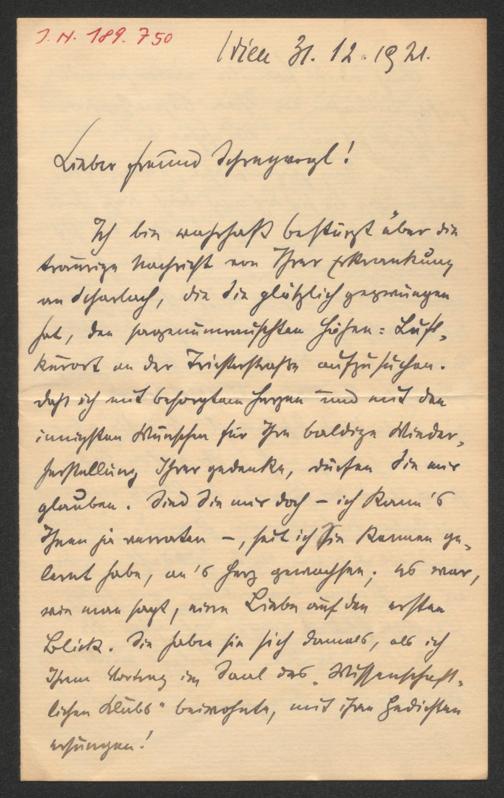 J. N. 189.750
Wien 31. 12. 1921.
Lieber Freund Schreyvogl!
Ich bin wahrhaft bestürzt über die
traurige Nachricht von Ihrer Erkrankung
an Scharlach, die Sie plötzlich gezwungen
hat, den sagenumrauschten Höhen=Luft-
kurort an der Triesterstraße aufzusuchen.
Daß ich mit besorgtem Herzen und mit den
innigsten Wünschen für Ihre baldige Wieder-
herstellung Ihrer gedenke, dürfen Sie mir
glauben. Sind Sie mir doch – ich kann's
Ihnen ja verraten –, seit ich Sie kennen ge-
lernt habe, an's Herz gewachsen; es war,
wie man sagt, eine Liebe auf den ersten
Blick. Sie haben sie sich damals, als ich
Ihrem Vortrag im Saal des „Wissenschaft-
lichen Klubs" beiwohnte, mit ihren Gedichten
ersungen!